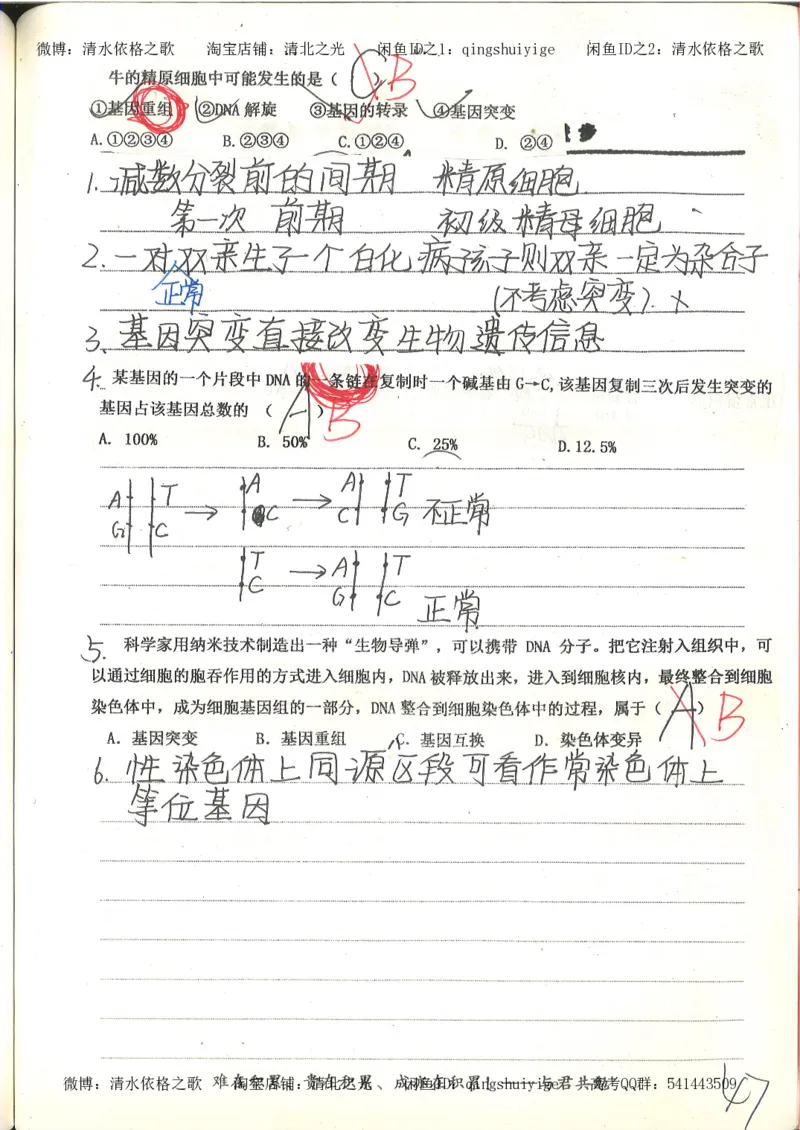 微博：清水依格之歌 淘宝店铺：清北之光 闲鱼ID之1：qingshuiyige 闲鱼ID之2：清水依格之歌
牛的精原细胞中可能发生的是（ C ）B
①基因重组 ②DNA 解旋 ③基因的转录 ④基因突变
A.①②③④ B.②③④ C.①②④ D. ②④
1.减数分裂前的间期 精原细胞
第一次 前期 初级精母细胞
2.一对双亲生了一个白化病孩子则双亲一定为杂合子
正常 (不考虑突变). ×
3.基因突变直接改变生物遗传信息
4. 某基因的一个片段中 DNA 的一条链在复制时一个碱基由 G→C,该基因复制三次后发生突变的
基因占该基因总数的 （ A ）B
A. 100% B. 50% C. 25% D.12.5%
A T → A → A T 不正常
G C C C G
T → A T
C G C 正常
5. 科学家用纳米技术制造出一种“生物导弹”，可以携带 DNA 分子。把它注射入组织中，可
以通过细胞的胞吞作用的方式进入细胞内，DNA 被释放出来，进入到细胞核内，最终整合到细胞
染色体中，成为细胞基因组的一部分，DNA 整合到细胞染色体中的过程，属于（ A ）B
A. 基因突变 B. 基因重组 C. 基因互换 D. 染色体变异
6. 性染色体上同源区段可看作常染色体上
等位基因
微博：清水依格之歌 淘宝店铺：清北之光 闲鱼ID：qingshuiyige 高考QQ群：541443509
47